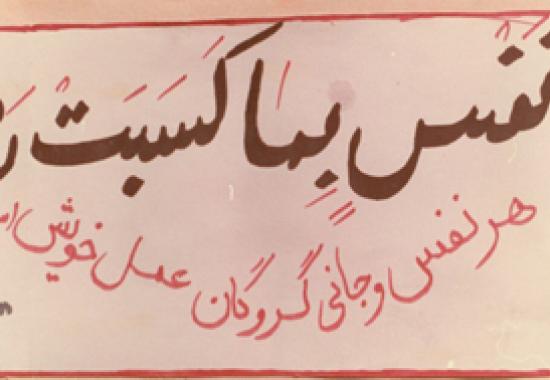 نَفْسٍ بِمَا كَسَبَتْ
هر نفس و جانی گروگان عمل خویش